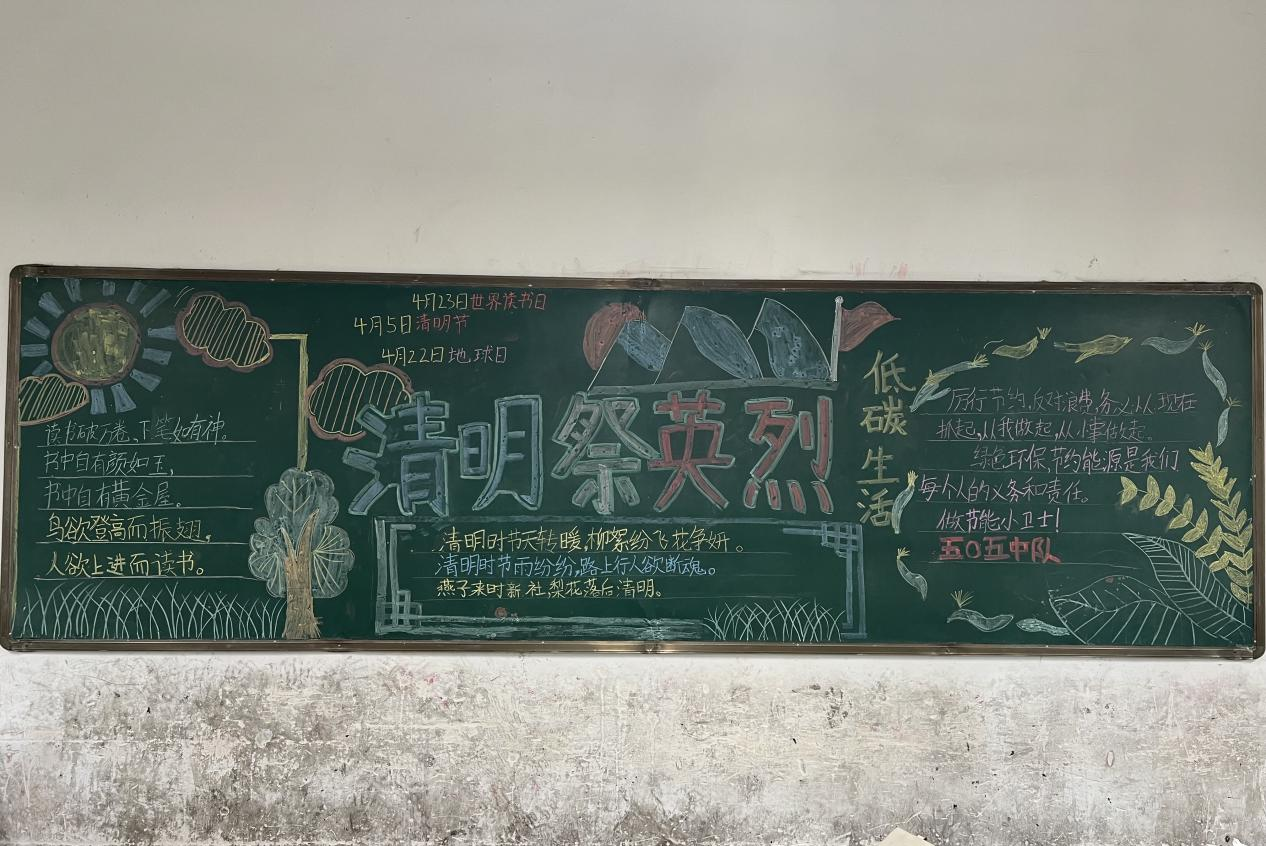 读书破万卷、下笔如有神。
书中自有颜如玉,
书中自有黄金屋。
鸟欲登高而振翅,
人欲上进而读书。
4月23日世界读书日
4月5日清明节
4月22日地球日
清明祭英烈
清明时节天转暖,柳絮纷飞花争妍。
清明时节雨纷纷,路上行人欲断魂。
燕子来时新社,梨花落后清明。
低碳生活
厉行节约,反对浪费,务必从现在
抓起,从我做起,从小事做起。
绿色环保,节约能源是我们
每个人的义务和责任。
做节能小卫士!
五0五中队